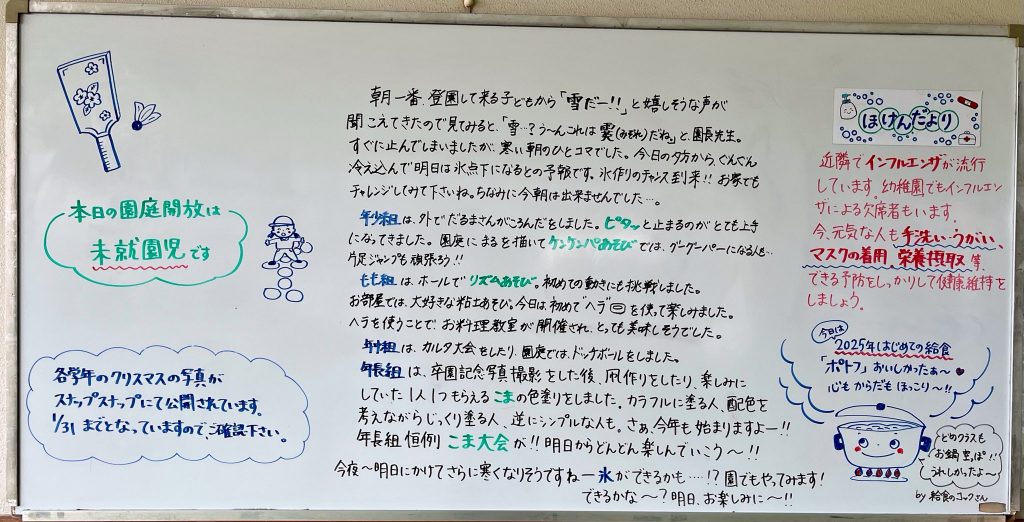 本日の園庭開放は
未就園児です
各学年のクリスマスの写真が
スナップスナップにて公開されています。
1/31 までとなっていますので、ご確認下さい。
朝一番、登園して来る子どもから「雪だー!!」と嬉しそうな声が
聞こえてきたので見てみると、「雪…?う〜んこれは霙(みぞれ)だね。」と、園長先生。
すぐに止んでしまいましたが、寒い朝のひとコマでした。今日の夕方からぐんぐん
冷え込んで明日は氷点下になるとの予報です。氷作りのチャンス到来!!お家でも
チャレンジしてみて下さいね。ちなみに今朝は出来ませんでした…。
年少組は、外でだるまさんがころんだをしました。ピタッと止まるのがとても上手
になってきました。園庭にまるを描いてケンケンパあそびでは、グーグーパーになる人も…
片足ジャンプも頑張ろう!!
もも組は、ホールでリズムあそび。初めての動きにも挑戦しました。
お部屋では、大好きな粘土あそび。今日は初めて"ヘラ"を使って楽しみました。
ヘラを使うことでお料理教室が開催され、とっても美味しそうでした。
年中組は、カルタ大会をしたり、園庭では、ドッチボールをしました。
年長組は、卒園記念写真撮影をした後、凧作りをしたり、楽しみに
していた1人1つもらえるこまの色塗りをしました。カラフルに塗る人、配色を
考えながらじっくり塗る人、逆にシンプルな人も。さぁ、今年も始まりますよー!!
年長組恒例 こま大会が!!明日からどんどん楽しんでいこう〜!!
今夜〜明日にかけてさらに寒くなりそうですねー氷ができるかも……!?園でもやってみます!
できるかな〜?明日、お楽しみに〜!!
ほけんだより
近隣でインフルエンザが流行
しています。幼稚園でもインフルエン
ザによる欠席者もいます。
今、元気な人も手洗い・うがい、
マスクの着用、栄養摂取等、
できる予防をしっかりして健康維持を
しましょう。
今日は
2025年はじめての給食
「ポトフ」おいしかったぁ〜♥
心もからだもほっこり〜!!
どのクラスも
お鍋空っぽ!!
うれしかったよ〜
by 給食のコックさん